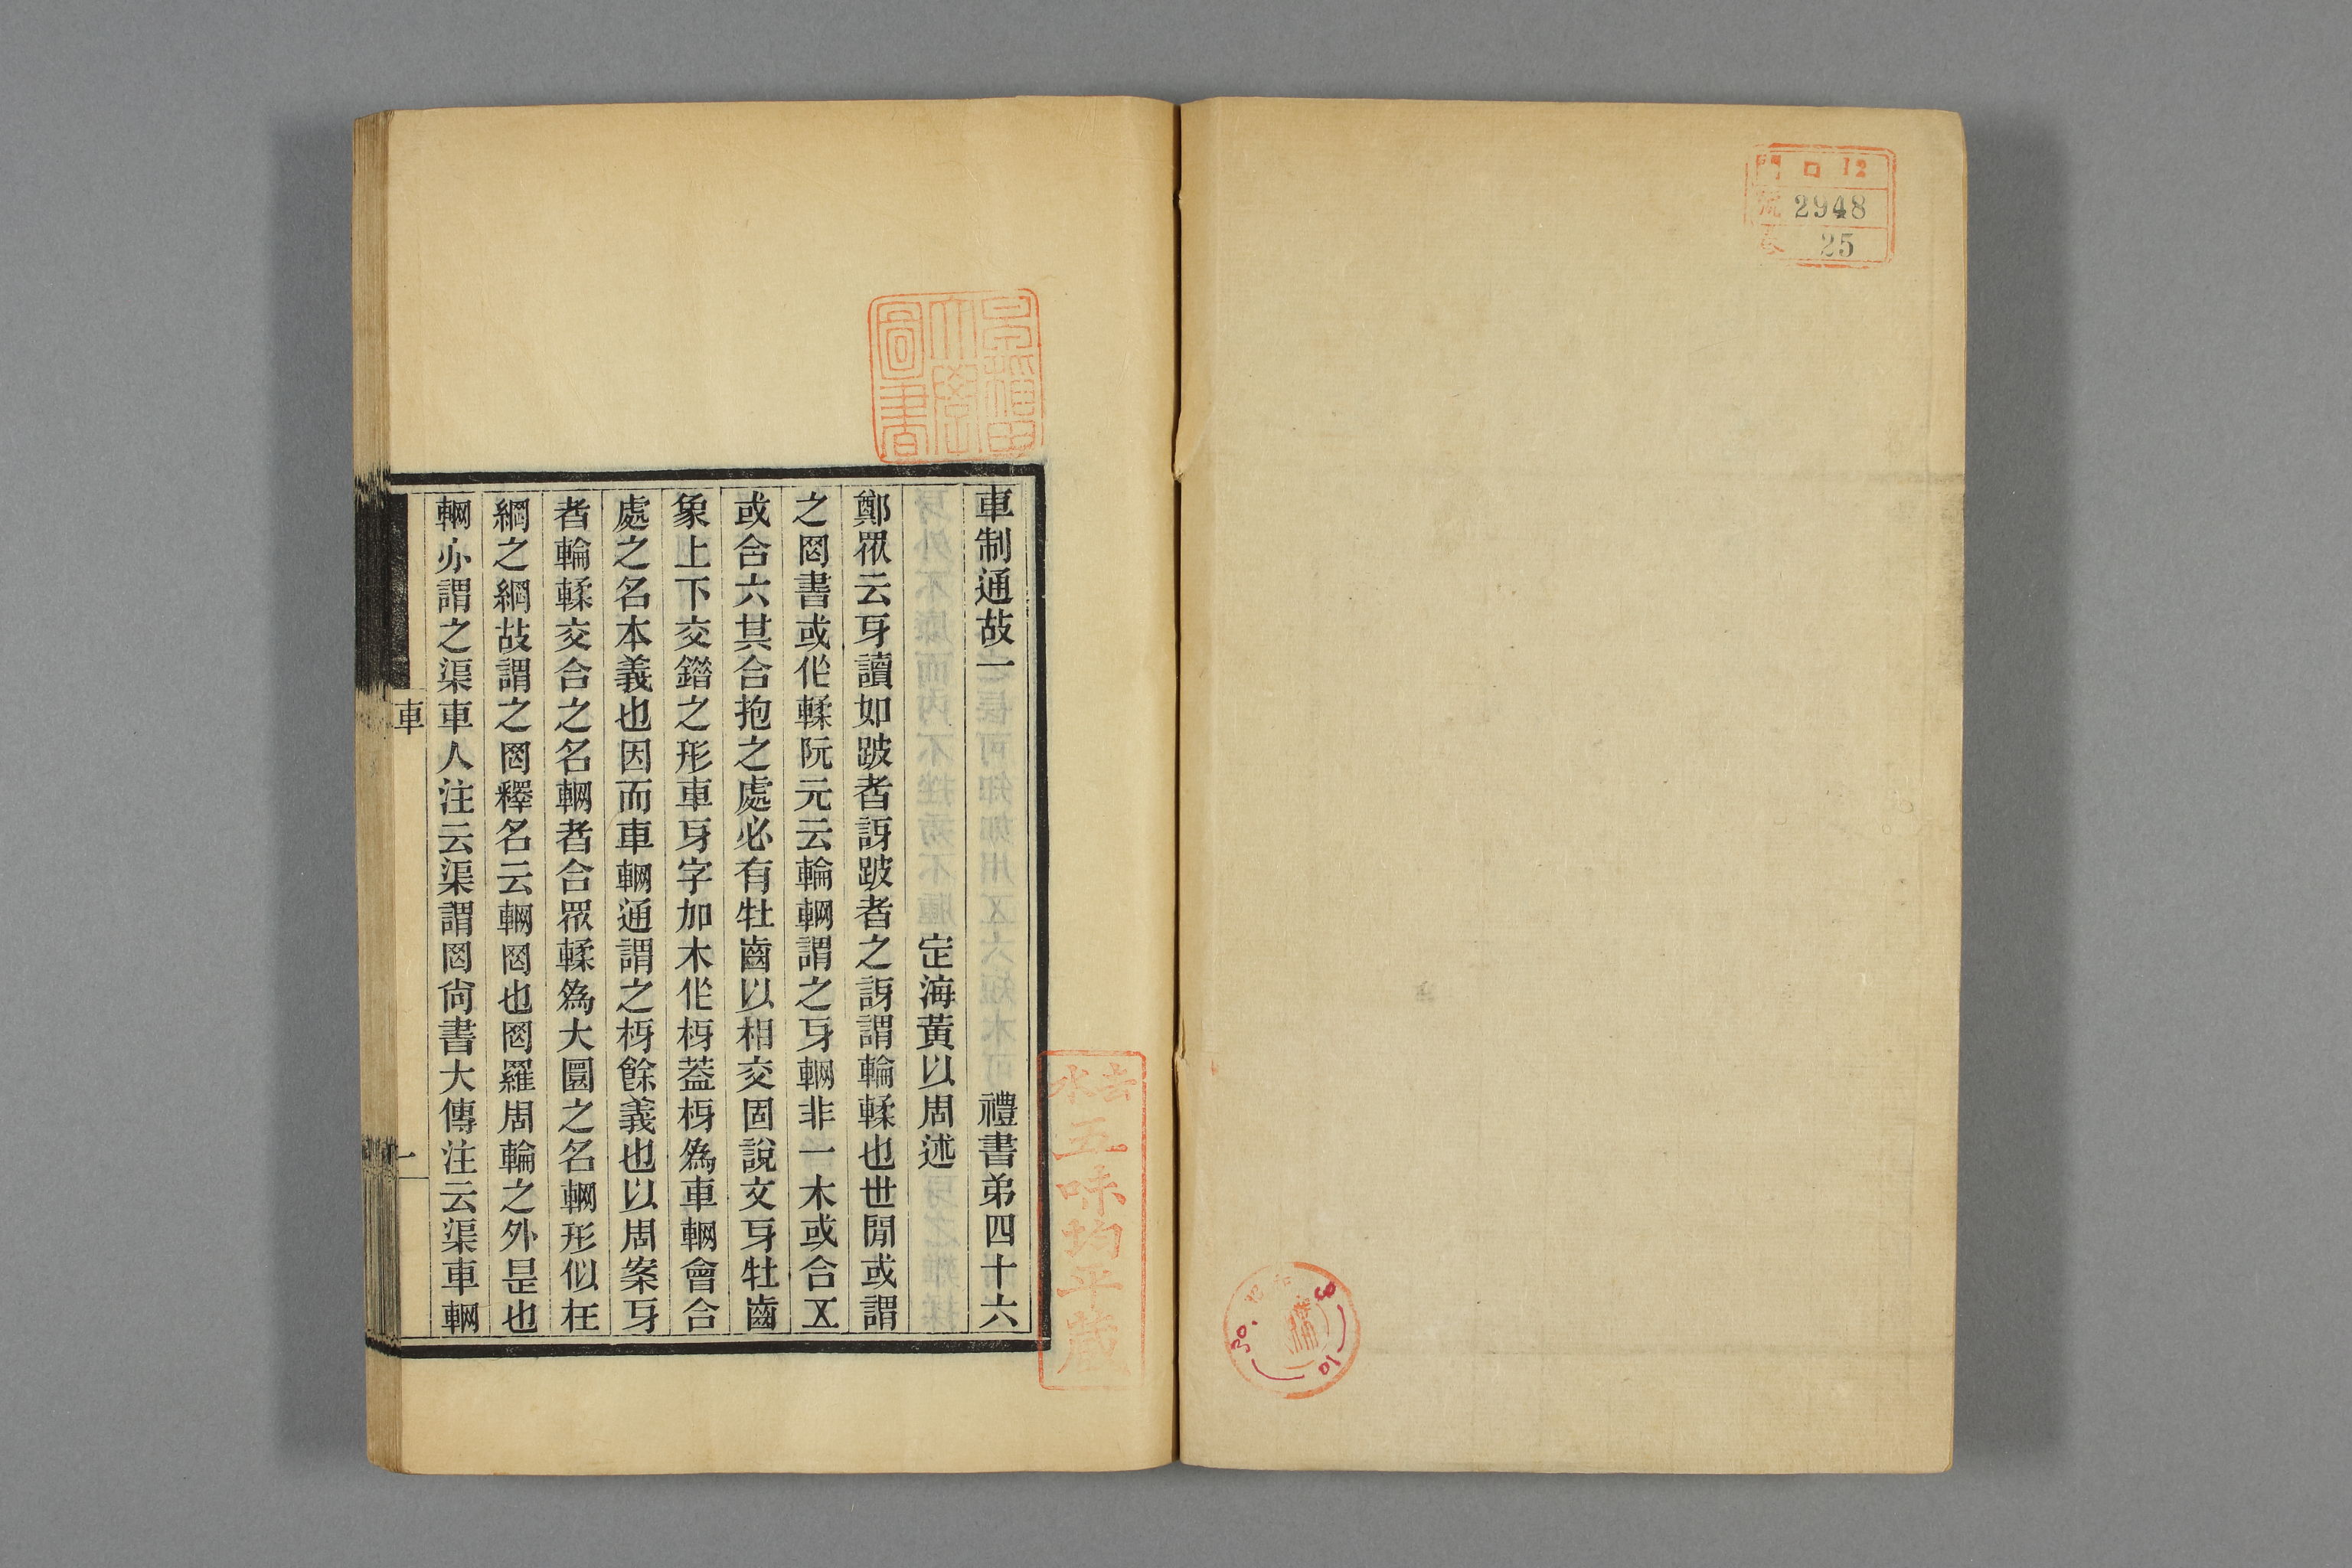 門 口 12
號 2948
卷 25
早稻田大學圖書
車制通故一 禮書弟四十六
定海黃以周述
鄭眾云牙讀如跛者訝跛者之訝謂輪輮也世閒或謂
之罔書或作輮阮元云輪輞謂之牙輞非一木或合五
或合六其合抱之處必有牡齒以相交固說文牙牡齒
象上下交錯之形車牙字加木作枒蓋枒爲車輞會合
處之名本義也因而車輞通謂之枒餘義也以周案牙
者輪輮交合之名輞者合眾輮爲大圜之名輞形佀在
網之綱故謂之罔釋名云輞罔也罔羅周輪之外是也
輞亦謂之渠車人注云渠謂罔尙書大傳注云渠車輞
車
一
五味均平蔵
30.
8
10